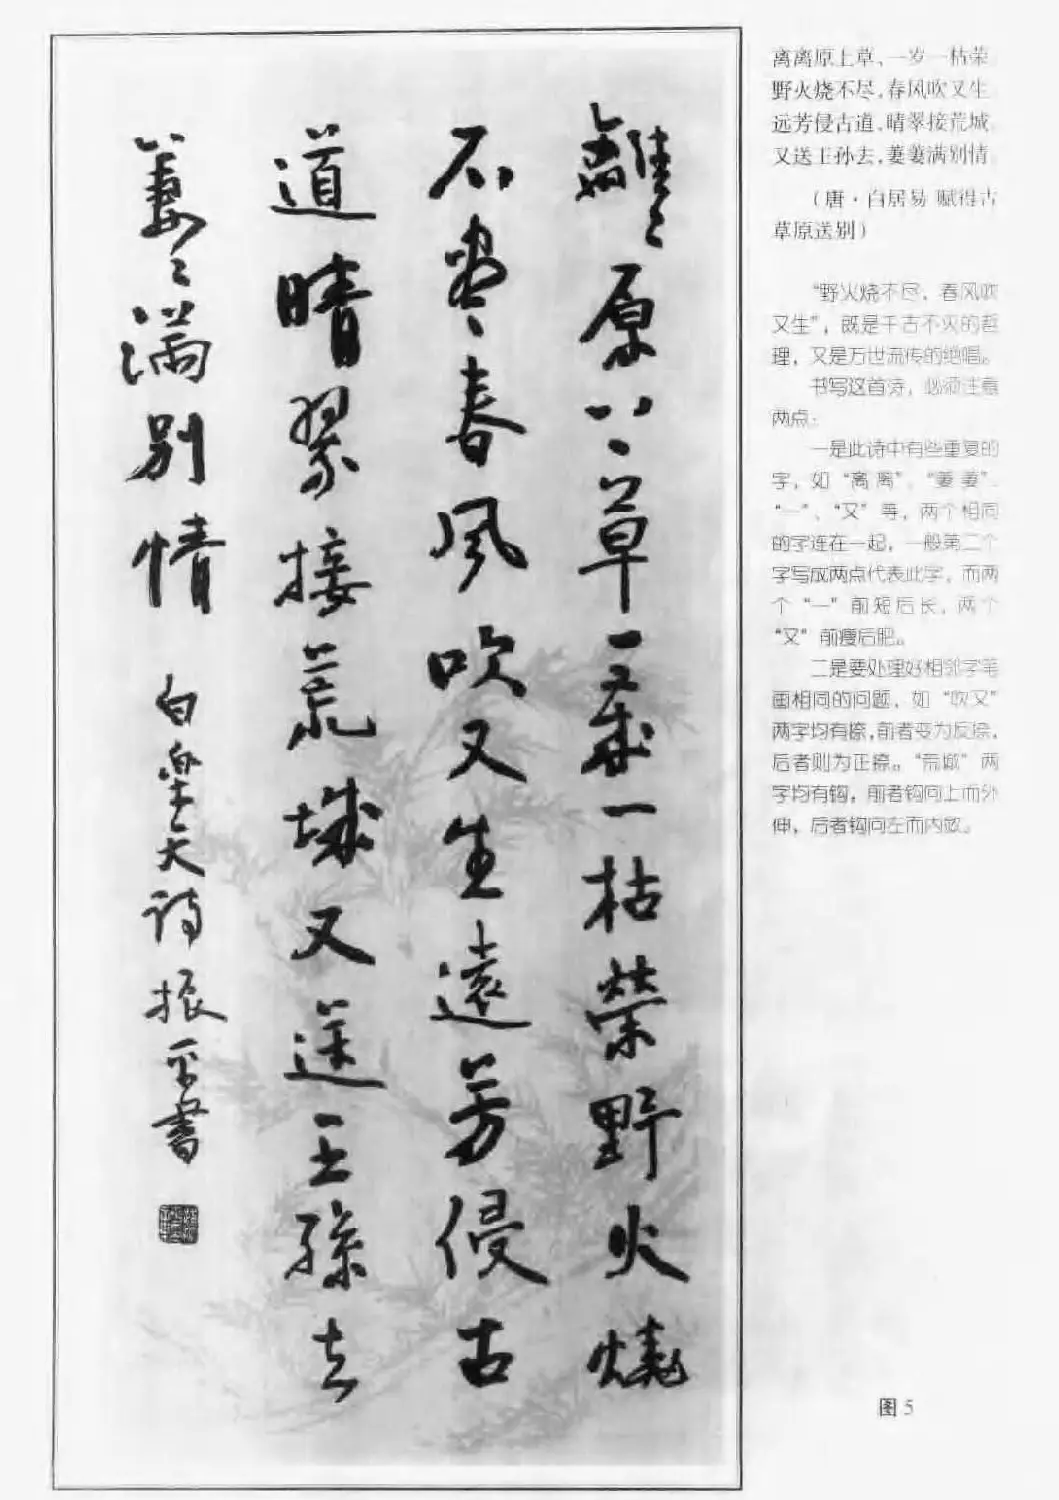 離〻原上〻草一歲一枯榮野火燒
不盡〻春風吹又生遠芳侵古
道晴翠接荒城又送王孫去
萋〻滿別情
白樂天詩振平書
离离原上草、一岁一枯荣
野火烧不尽,春风吹又生
远芳侵古道,晴翠接荒城
又送王孙去,萋萋满别情
(唐·白居易 赋得古
草原送别)
“野火烧不尽，春风吹
又生”，既是千古不灭的哲
理，又是万世流传的绝唱。
书写这首诗，必须注意
两点：
一是此诗中有些重复的
字，如“离离”、“萋萋”、
“一”、“又”等，两个相同
的字连在一起，一般第二个
字写成两点代表此字，而两
个“一”前短后长，两个
“又”前瘦后肥。
二是要处理好相邻字笔
画相同的问题，如“吹又”
两字均有捺，前者变为反捺，
后者则为正捺。“荒城”两
字均有钩，前者钩向上而外
伸，后者钩向左而内敛。
图 5